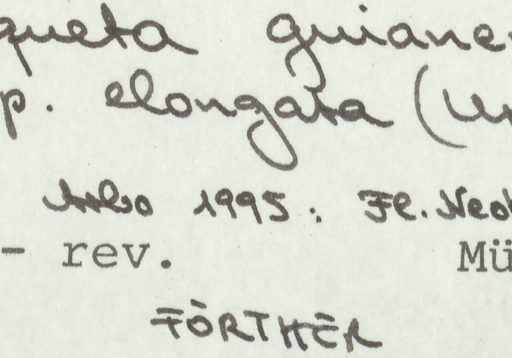 queta guiane
p. elongata (Ur
Arbo 1995: Fl. Neot
- rev. Mü
FÖRTHER